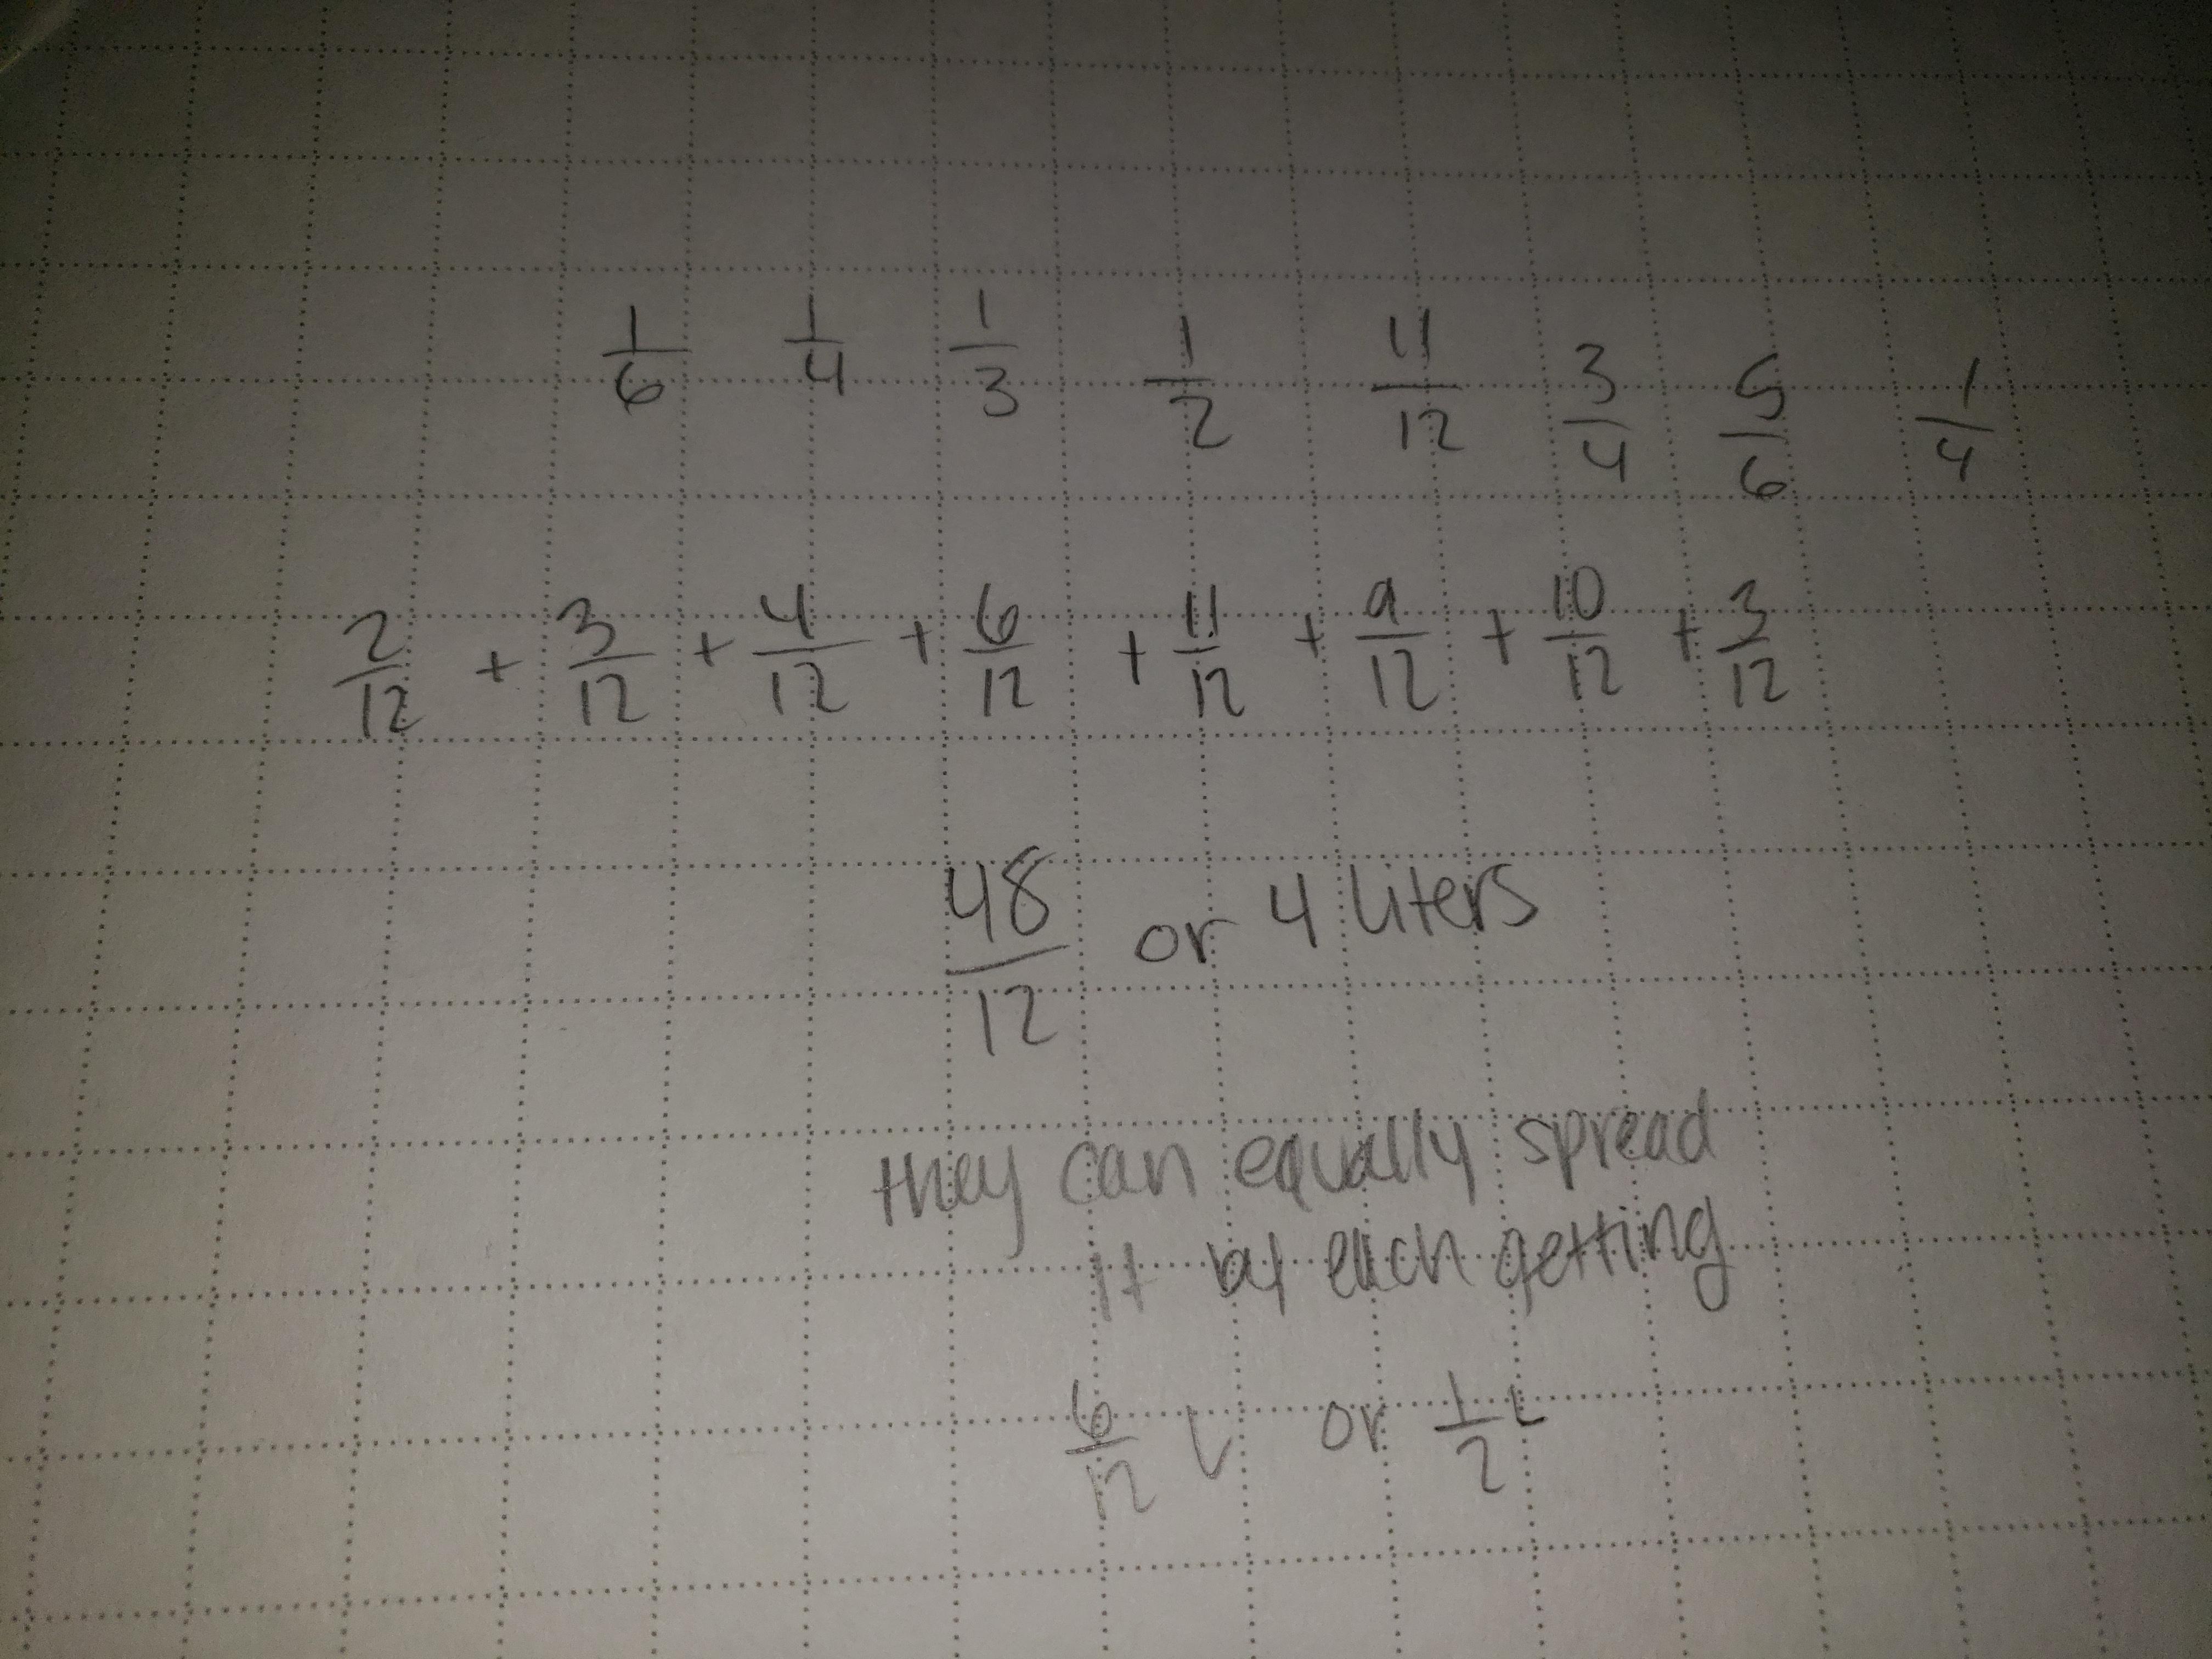 1/6 1/4 1/3 1/2 11/12 3/4 5/6 1/4
2/12 + 3/12 + 4/12 + 6/12 + 11/12 + 9/12 + 10/12 + 3/12
48/12 or 4 liters
they can equally spread
it by each getting
6/12 L or 1/2 L